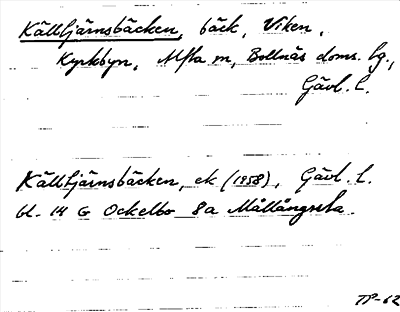 Källtjärnsbäcken, bäck, Viken,
Kyrkbyn, Alfta sn, Bollnäs doms. hg.,
Gävl. l.
Källtjärnsbäcken, ek (1958), Gävl. l.
bl. 14 G Ockelbo 8a Mållångssta.
TP-62